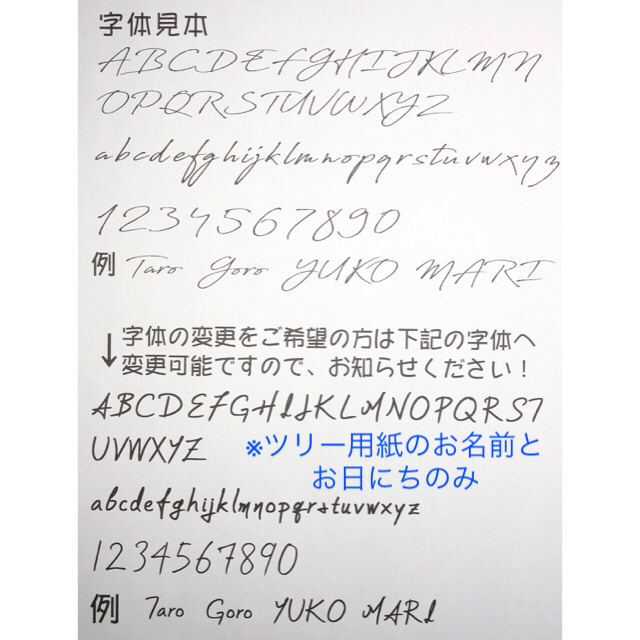 字体見本
ABCDEFGHIJKLMN
OPQRSTUVWXYZ
abcdefghijklmnopqrstuvwxyz
1234567890
例 Taro Goro YUKO MARI
↓字体の変更をご希望の方は下記の字体へ
変更可能ですので、お知らせください！
ABCDEFGHIJKLMNOPQRST
UVWXYZ
※ツリー用紙のお名前と
お日にちのみ
abcdefghijklmnopqrstuvwxyz
1234567890
例 Taro Goro YUKO MARI